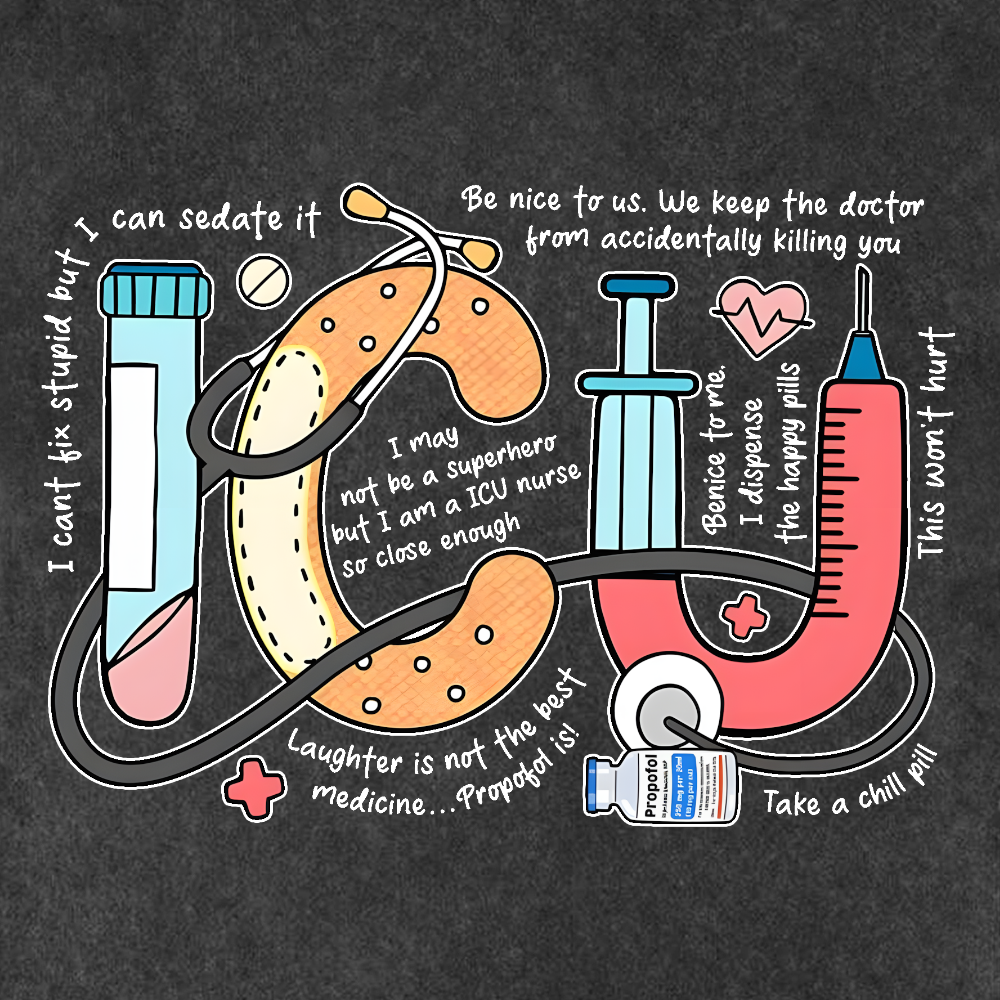 I cant fix stupid but I can sedate it
Be nice to us. We keep the doctor
from accidentally killing you
I may
not be a superhero
but I am a ICU nurse
so close enough
Benice to me.
I dispense
the happy pills
This won't hurt
Laughter is not the best
medicine...Propofol is!
Propofol
Take a chill pill